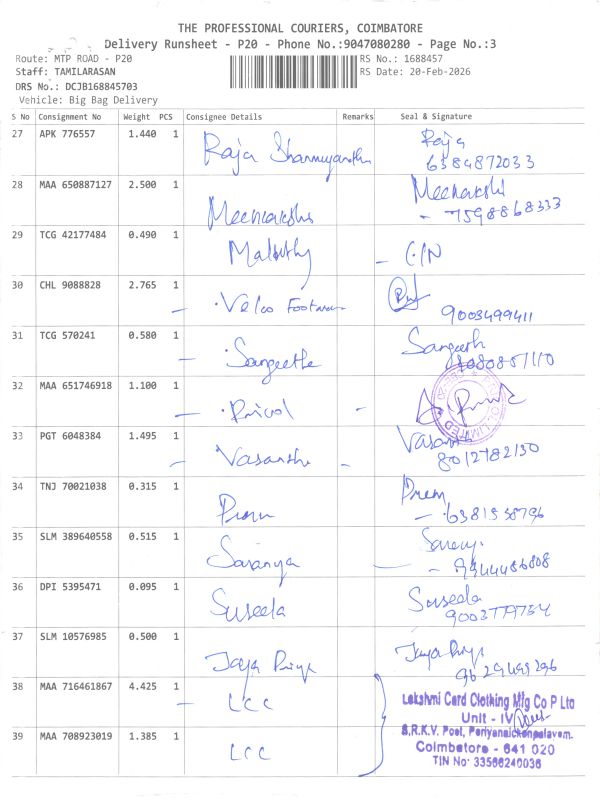 THE PROFESSIONAL COURIERS, COIMBATORE
Delivery Runsheet - P20 - Phone No.:9047080280 - Page No.:3
Route: MTP ROAD - P20
RS No.: 1688457
Staff: TAMILARASAN
RS Date: 20-Feb-2026
DRS No.: DCJB168845703
Vehicle: Big Bag Delivery
S No Consignment No Weight PCS Consignee Details Remarks Seal & Signature
27 APK 776557 1.440 1 Raja Raja
6384872033
28 MAA 650887127 2.500 1 Meenakshi Meenakshi
- 7598868333
29 TCG 42177484 0.490 1 - C/N
30 CHL 9088828 2.765 1 - Velco Footwear
9003499411
31 TCG 570241 0.580 1 - Sangeetha Sangeeth
32 MAA 651746918 1.100 1 - Pricol -
LIMITED
33 PGT 6048384 1.495 1 - Vasantha - Vasantha
8012782130
34 TNJ 70021038 0.315 1 Prem Prem
35 SLM 389640558 0.515 1 Saranya -
36 DPI 5395471 0.095 1 Suseela Suseela
37 SLM 10576985 0.500 1 Jaya Priya Jaya Priya
38 MAA 716461867 4.425 1 - LCC
Lakshmi Card Clothing Mfg Co P Ltd
Unit - IV
S.R.K.V. Post, Periyanaickenpalayam.
Coimbatore - 641 020
TIN No: 33566240036
39 MAA 708923019 1.385 1 LCC